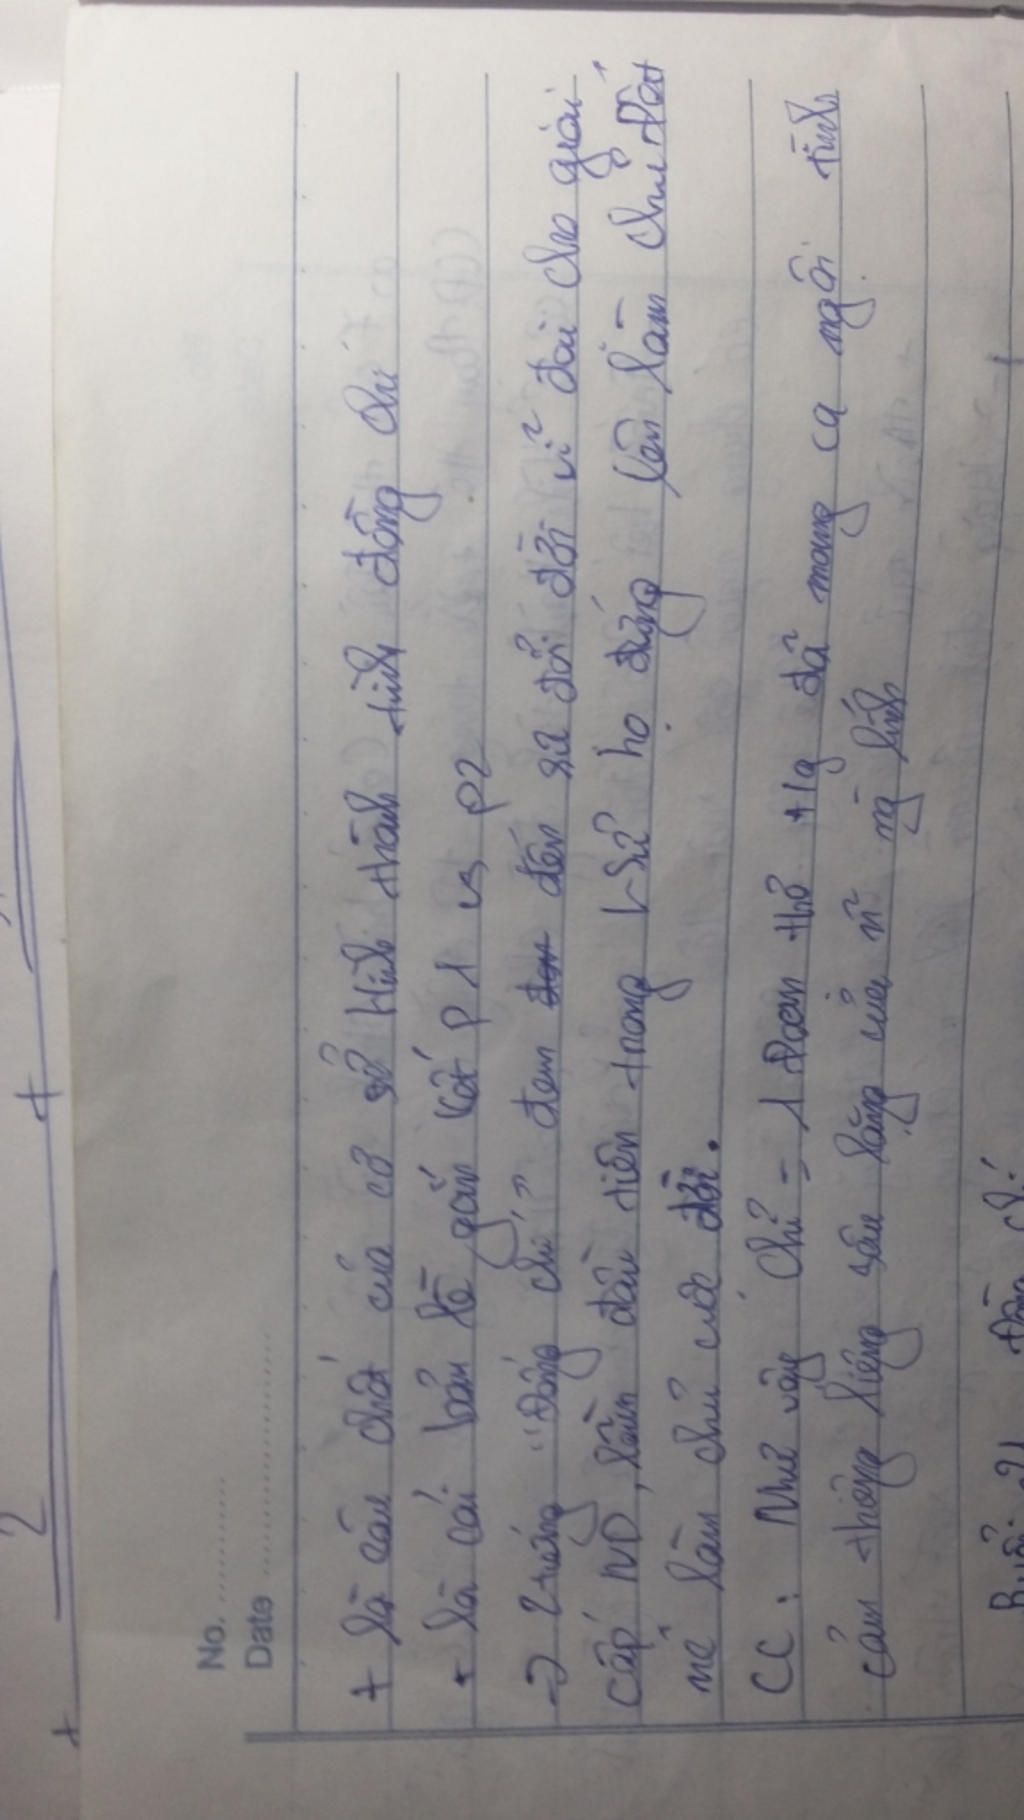 No. ............
Date ......................
+ là câu chốt của cơ sở Hình thành tình đồng chí
+ là cái bản lề gắn kết P1 vs P2
-> 2 tiếng "Đồng chí" đem đến sự đổi đời vĩ đại cho giai
cấp ND, lần đầu tiên trong L Sử họ đứng lên làm chủ đất
nc làm chủ cuộc đời.
CC: Như vậy Chỉ = 1 Đoạn thơ t/g đã mang ca ngợi tình
cảm thiêng liêng sâu lắng của n~ ng lính
Đồng chí